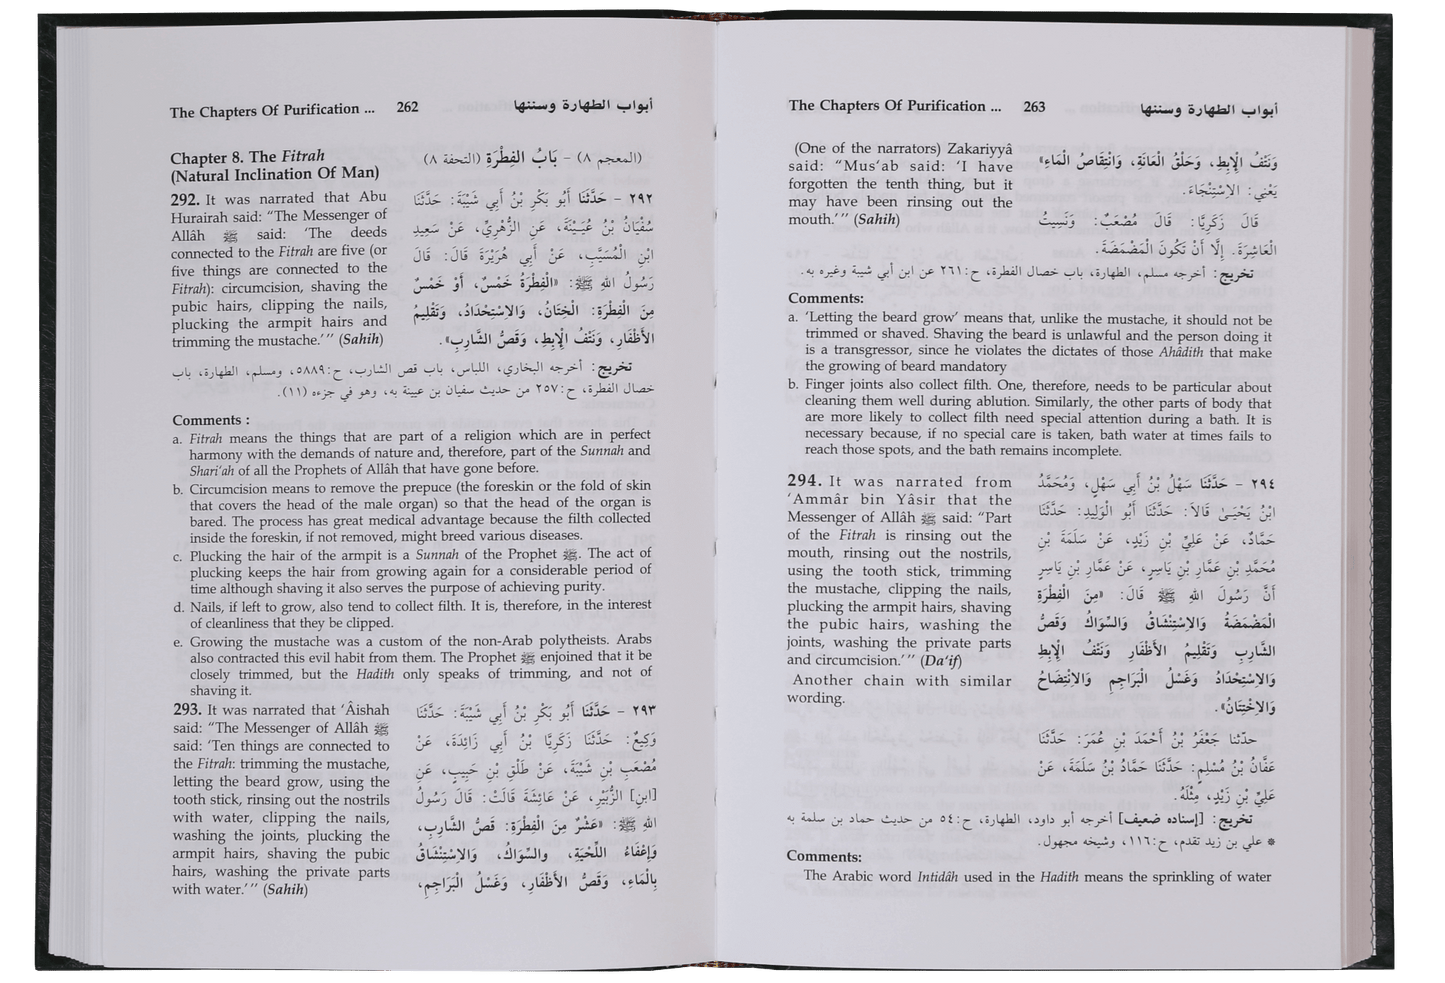 The Chapters Of Purification ... 262 أبواب الطهارة وسننها
Chapter 8. The Fitrah
(Natural Inclination Of Man)
292. It was narrated that Abu
Hurairah said: "The Messenger of
Allâh ﷺ said: 'The deeds
connected to the Fitrah are five (or
five things are connected to the
Fitrah): circumcision, shaving the
pubic hairs, clipping the nails,
plucking the armpit hairs and
trimming the mustache.'" (Sahih)
(المعجم ٨) - بَابُ الْفِطْرَةِ (التحفة ٨)
٢٩٢ - حَدَّثَنَا أَبُو بَكْرِ بْنُ أَبِي شَيْبَةَ: حَدَّثَنَا
سُفْيَانُ بْنُ عُيَيْنَةَ، عَنِ الزُّهْرِيِّ، عَنْ سَعِيدِ
ابْنِ الْمُسَيَّبِ، عَنْ أَبِي هُرَيْرَةَ قَالَ: قَالَ
رَسُولُ اللهِ ﷺ: «الْفِطْرَةُ خَمْسٌ، أَوْ خَمْسٌ
مِنَ الْفِطْرَةِ: الْخِتَانُ، وَالِاسْتِحْدَادُ، وَتَقْلِيمُ
الأَظْفَارِ، وَنَتْفُ الْإِبِطِ، وَقَصُّ الشَّارِبِ».
تخريج: أخرجه البخاري، اللباس، باب قص الشارب، ح:٥٨٨٩، ومسلم، الطهارة، باب
خصال الفطرة، ح:٢٥٧ من حديث سفيان بن عيينة به، وهو في جزءه (١١).
Comments :
a. Fitrah means the things that are part of a religion which are in perfect
harmony with the demands of nature and, therefore, part of the Sunnah and
Shari'ah of all the Prophets of Allâh that have gone before.
b. Circumcision means to remove the prepuce (the foreskin or the fold of skin
that covers the head of the male organ) so that the head of the organ is
bared. The process has great medical advantage because the filth collected
inside the foreskin, if not removed, might breed various diseases.
c. Plucking the hair of the armpit is a Sunnah of the Prophet ﷺ. The act of
plucking keeps the hair from growing again for a considerable period of
time although shaving it also serves the purpose of achieving purity.
d. Nails, if left to grow, also tend to collect filth. It is, therefore, in the interest
of cleanliness that they be clipped.
e. Growing the mustache was a custom of the non-Arab polytheists. Arabs
also contracted this evil habit from them. The Prophet ﷺ enjoined that it be
closely trimmed, but the Hadith only speaks of trimming, and not of
shaving it.
293. It was narrated that 'Âishah
said: "The Messenger of Allâh ﷺ
said: 'Ten things are connected to
the Fitrah: trimming the mustache,
letting the beard grow, using the
tooth stick, rinsing out the nostrils
with water, clipping the nails,
washing the joints, plucking the
armpit hairs, shaving the pubic
hairs, washing the private parts
with water.'" (Sahih)
٢٩٣ - حَدَّثَنَا أَبُو بَكْرِ بْنُ أَبِي شَيْبَةَ: حَدَّثَنَا
وَكِيعٌ: حَدَّثَنَا زَكَرِيَّا بْنُ أَبِي زَائِدَةَ، عَنْ
مُصْعَبِ بْنِ شَيْبَةَ، عَنْ طَلْقِ بْنِ حَبِيبٍ، عَنِ
[ابن] الزُّبَيْرِ، عَنْ عَائِشَةَ قَالَتْ: قَالَ رَسُولُ
اللهِ ﷺ: «عَشْرٌ مِنَ الْفِطْرَةِ: قَصُّ الشَّارِبِ،
وَإِعْفَاءُ اللِّحْيَةِ، والسِّوَاكُ، وَالِاسْتِنْشَاقُ
بِالْمَاءِ، وَقَصُّ الأَظْفَارِ، وَغَسْلُ الْبَرَاجِمِ،
The Chapters Of Purification ... 263 أبواب الطهارة وسننها
(One of the narrators) Zakariyyâ
said: "Mus'ab said: 'I have
forgotten the tenth thing, but it
may have been rinsing out the
mouth.'" (Sahih)
وَنَتْفُ الْإِبِطِ، وَحَلْقُ الْعَانَةِ، وَانْتِقَاصُ الْمَاءِ»
يَعْنِي: الِاسْتِنْجَاءَ.
قَالَ زَكَرِيَّا: قَالَ مُصْعَبٌ: وَنَسِيتُ
الْعَاشِرَةَ. إِلَّا أَنْ تَكُونَ الْمَضْمَضَةَ.
تخريج: أخرجه مسلم، الطهارة، باب خصال الفطرة، ح:٢٦١ عن ابن أبي شيبة وغيره به.
Comments:
a. 'Letting the beard grow' means that, unlike the mustache, it should not be
trimmed or shaved. Shaving the beard is unlawful and the person doing it
is a transgressor, since he violates the dictates of those Ahâdith that make
the growing of beard mandatory
b. Finger joints also collect filth. One, therefore, needs to be particular about
cleaning them well during ablution. Similarly, the other parts of body that
are more likely to collect filth need special attention during a bath. It is
necessary because, if no special care is taken, bath water at times fails to
reach those spots, and the bath remains incomplete.
294. It was narrated from
'Ammâr bin Yâsir that the
Messenger of Allâh ﷺ said: "Part
of the Fitrah is rinsing out the
mouth, rinsing out the nostrils,
using the tooth stick, trimming
the mustache, clipping the nails,
plucking the armpit hairs, shaving
the pubic hairs, washing the
joints, washing the private parts
and circumcision.'" (Da'if)
Another chain with similar
wording.
٢٩٤ - حَدَّثَنَا سَهْلُ بْنُ أَبِي سَهْلٍ، وَمُحَمَّدُ
ابْنُ يَحْيَىٰ قَالَا: حَدَّثَنَا أَبُو الْوَلِيدِ: حَدَّثَنَا
حَمَّادٌ، عَنْ عَلِيِّ بْنِ زَيْدٍ، عَنْ سَلَمَةَ بْنِ
مُحَمَّدِ بْنِ عَمَّارِ بْنِ يَاسِرٍ، عَنْ عَمَّارِ بْنِ يَاسِرٍ
أَنَّ رَسُولَ اللهِ ﷺ قَالَ: «مِنَ الْفِطْرَةِ
الْمَضْمَضَةُ وَالِاسْتِنْشَاقُ وَالسِّوَاكُ وَقَصُّ
الشَّارِبِ وَتَقْلِيمُ الأَظْفَارِ وَنَتْفُ الْإِبِطِ
وَالِاسْتِحْدَادُ وَغَسْلُ الْبَرَاجِمِ وَالِانْتِضَاحُ
وَالِاخْتِتَانُ».
حدثنا جَعْفَرُ بْنُ أَحْمَدَ بْنِ عُمَرَ: حَدَّثَنَا
عَفَّانُ بْنُ مُسْلِمٍ: حَدَّثَنَا حَمَّادُ بْنُ سَلَمَةَ، عَنْ
عَلِيِّ بْنِ زَيْدٍ، مِثْلَهُ.
تخريج: [إسناده ضعيف] أخرجه أبو داود، الطهارة، ح:٥٤ من حديث حماد بن سلمة به
* علي بن زيد تقدم، ح:١١٦، وشيخه مجهول.
Comments:
The Arabic word Intidâh used in the Hadith means the sprinkling of water